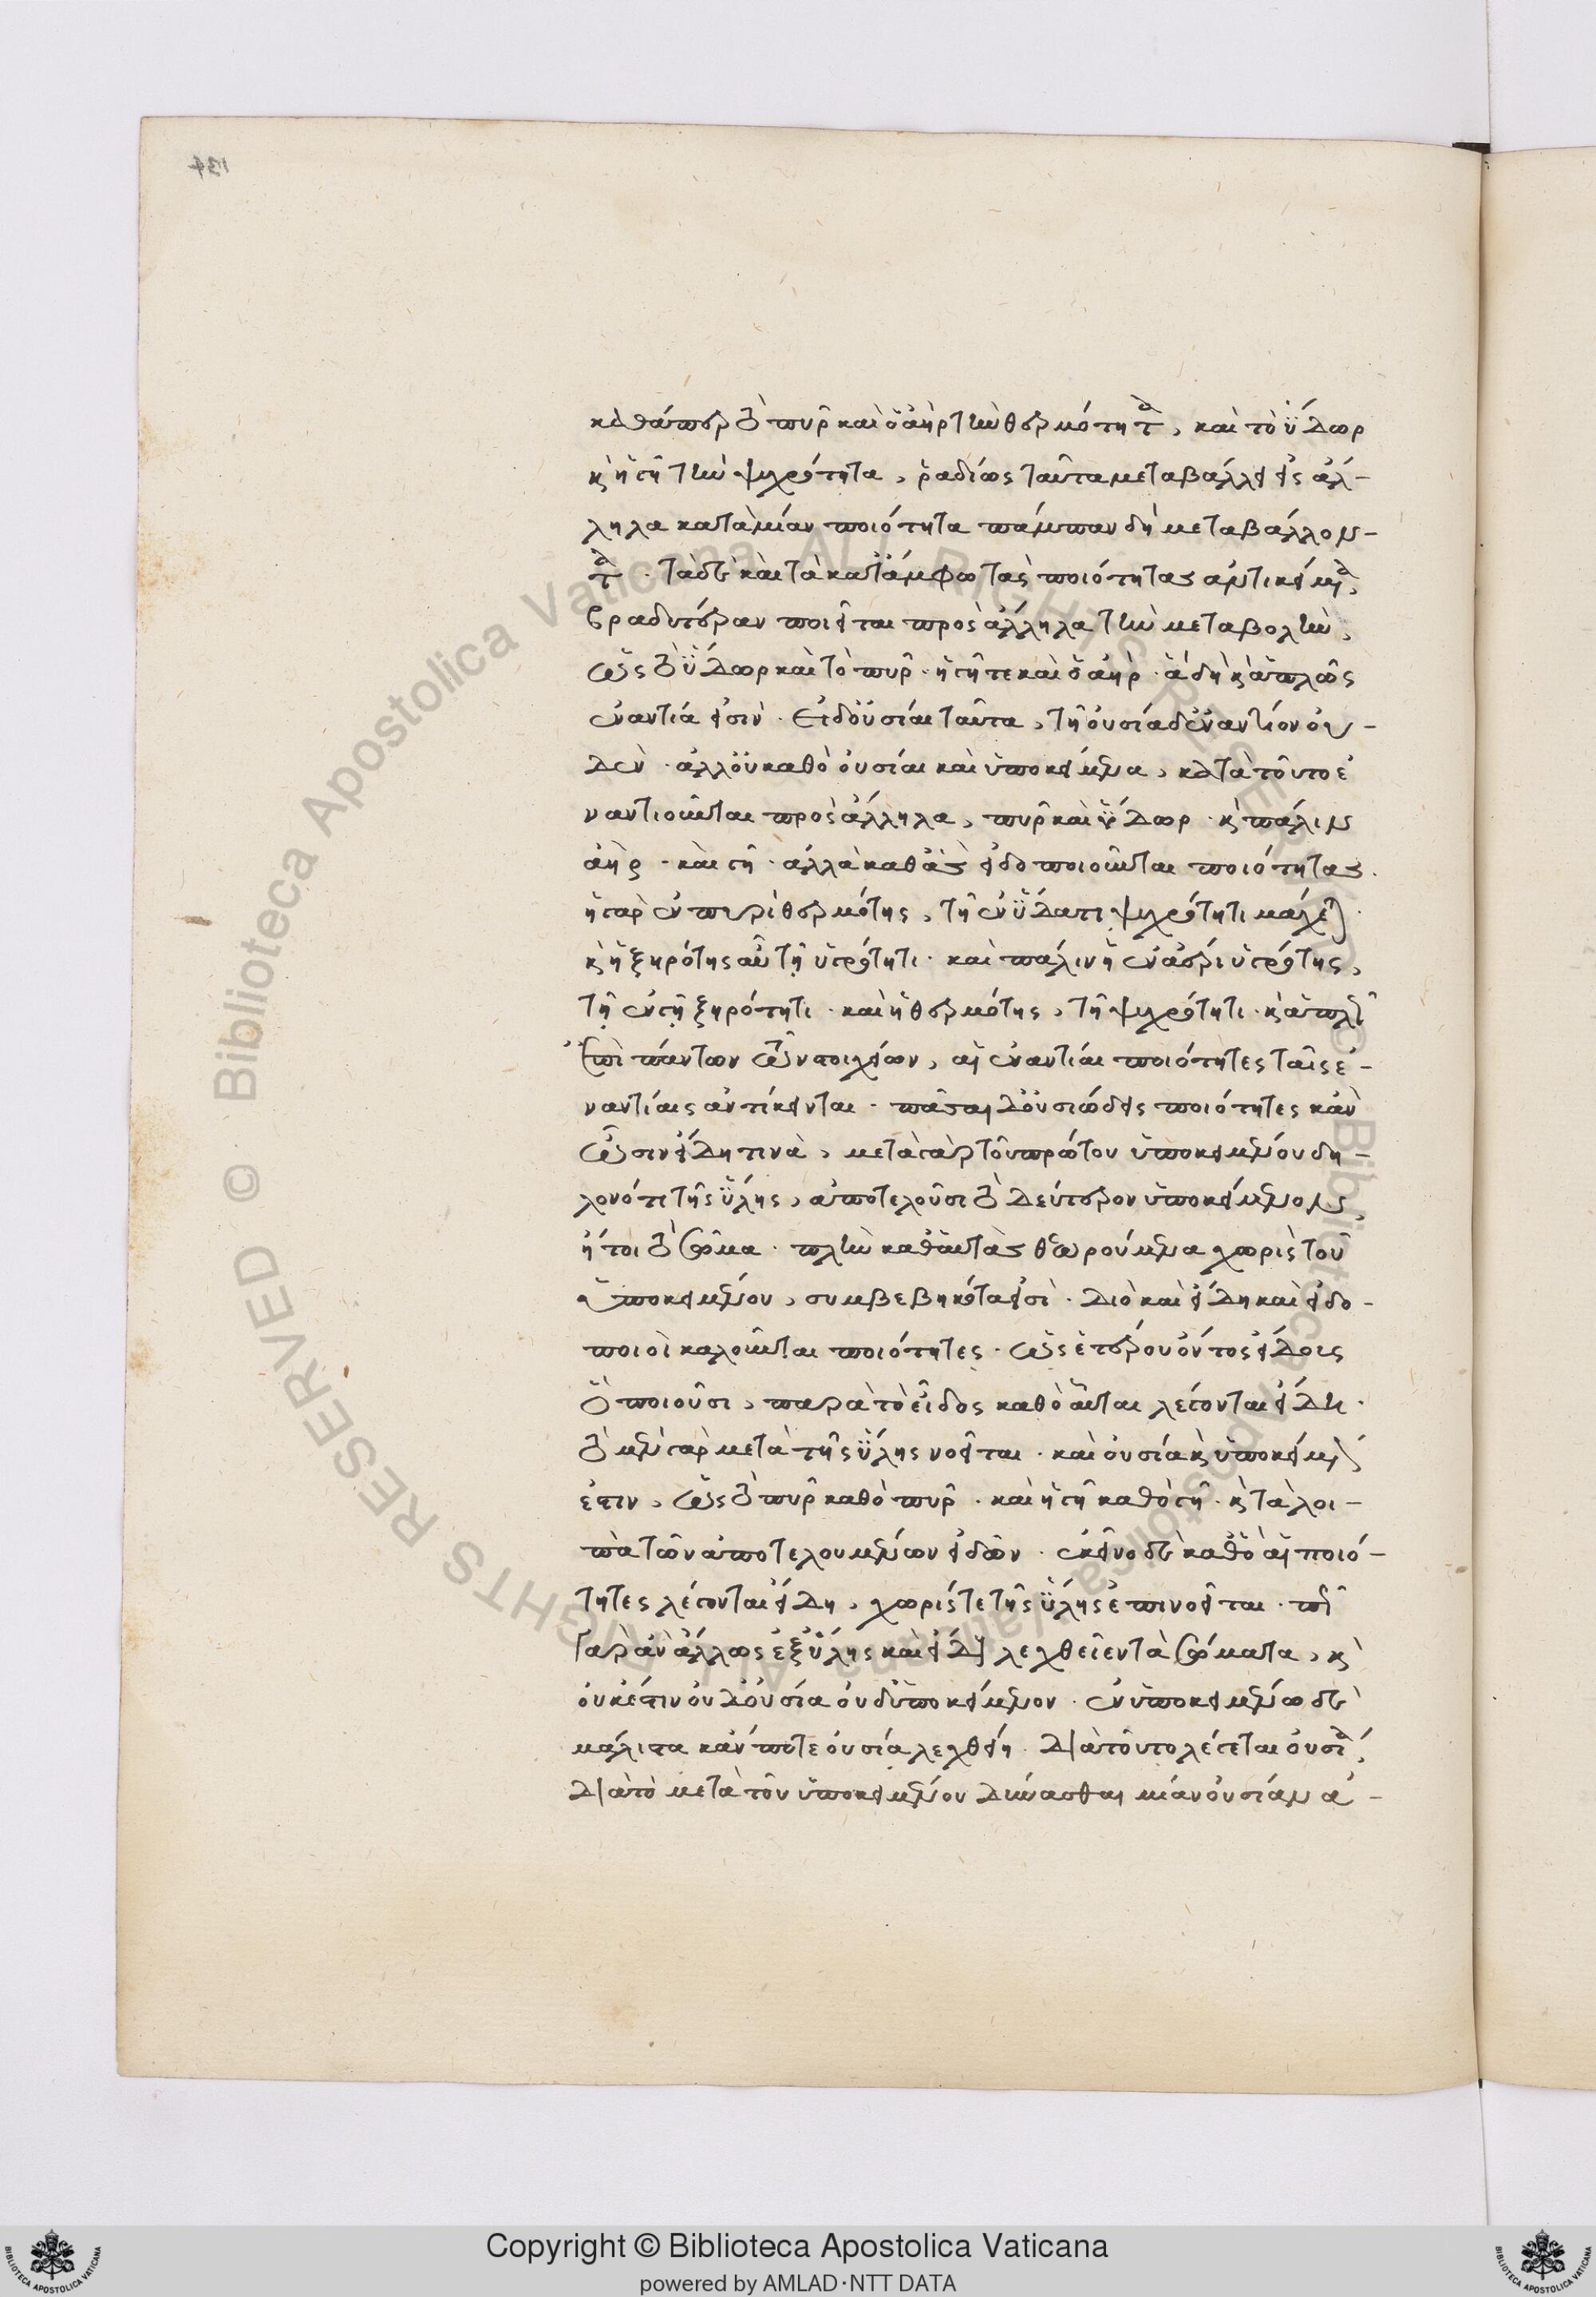 καθάπερ τὸ πῦρ καὶ ὁ ἀὴρ τὴν θερμότητα, καὶ τὸ ὕδωρ
καὶ ἡ γῆ τὴν ψυχρότητα, ῥαδίως ταῦτα μεταβάλλει εἰς ἄλ-
ληλα κατὰ μίαν ποιότητα πάμπαν δὴ μεταβάλλον-
τα. τὰ δὲ καὶ τὰ κατ' ἄμφω τὰς ποιότητας ἀντικείμενα,
βραδυτέραν ποιεῖται πρὸς ἄλληλα τὴν μεταβολὴν,
ὡς τὸ ὕδωρ καὶ τὸ πῦρ. ἡ γῆ τε καὶ ὁ ἀήρ. ἃ δὴ καὶ ἁπλῶς
ἐναντία εἰσὶν. εἰ δ' οὐσίαι ταῦτα, τῇ οὐσίᾳ δ' ἐναντίον οὐ-
δέν. ἀλλ' οὐ καθὸ οὐσίαι καὶ ὑποκείμενα, κατὰ τοῦτο ἐ
ναντιοῦνται πρὸς ἄλληλα, πῦρ καὶ ὕδωρ. καὶ πάλιν
ἀὴρ. καὶ γῆ. ἀλλὰ καθ' ἃς εἰδοποιοῦνται ποιότητας.
ἡ γὰρ ἐν πυρὶ θερμότης, τῇ ἐν ὕδατι ψυχρότητι μάχεται.
καὶ ἡ ξηρότης αὖ τῇ ὑγρότητι. καὶ πάλιν ἡ ἐν ἀέρι ὑγρότης,
τῇ ἐν γῇ ξηρότητι. καὶ ἡ θερμότης, τῇ ψυχρότητι. καὶ ἁπλῶς
ἐπὶ πάντων τῶν στοιχείων, αἱ ἐναντίαι ποιότητες ταῖς ἐ-
ναντίαις ἀντίκεινται. πᾶσαι δ' οὐσιώδεις ποιότητες κἂν
ὦσιν εἴδη τινὰ, μετὰ γὰρ τοῦ πρώτου ὑποκειμένου δη-
λονότι τῆς ὕλης, ἀποτελοῦσι τὸ δεύτερον ὑποκείμενον,
ἤτοι τὸ σῶμα. πλὴν καθ' αὑτὰς θεωρούμενα χωρὶς τοῦ
ὑποκειμένου, συμβεβηκότα εἰσὶ. διὸ καὶ εἴδη καὶ εἰδο-
ποιοὶ καλοῦνται ποιότητες. ὡς ἑτέρου ὄντος εἴδους
ὃ ποιοῦσι, παρὰ τὸ εἶδος καθὸ αὗται λέγονται εἴδη.
τὸ μὲν γὰρ μετὰ τῆς ὕλης νοεῖται. καὶ οὐσία καὶ ὑποκείμενόν
ἐστιν, ὡς τὸ πῦρ καθὸ πῦρ. καὶ ἡ γῆ καθὸ γῆ. καὶ τὰ λοι-
πὰ τῶν ἀποτελουμένων εἰδῶν. ἐκεῖνο δὲ καθ' ὃ αἱ ποιό-
τητες λέγονται εἴδη, χωρίς τε τῆς ὕλης ἐπινοεῖται. πῶς
γὰρ ἂν ἄλλως ἐξ ὕλης καὶ εἴδους λεχθεῖεν τὰ σώματα, καὶ
οὐκέστιν οὐδ' οὐσία οὐδ' ὑποκείμενον. ἐν ὑποκειμένῳ δὲ
μάλιστα κἄν ποτε οὐσία λεχθείη. διὰ τοῦτο λέγεται οὐσία,
διὰ τὸ μετὰ τοῦ ὑποκειμένου δύνασθαι μίαν οὐσίαν ἀ-
Copyright © Biblioteca Apostolica Vaticana
powered by AMLAD·NTT DATA